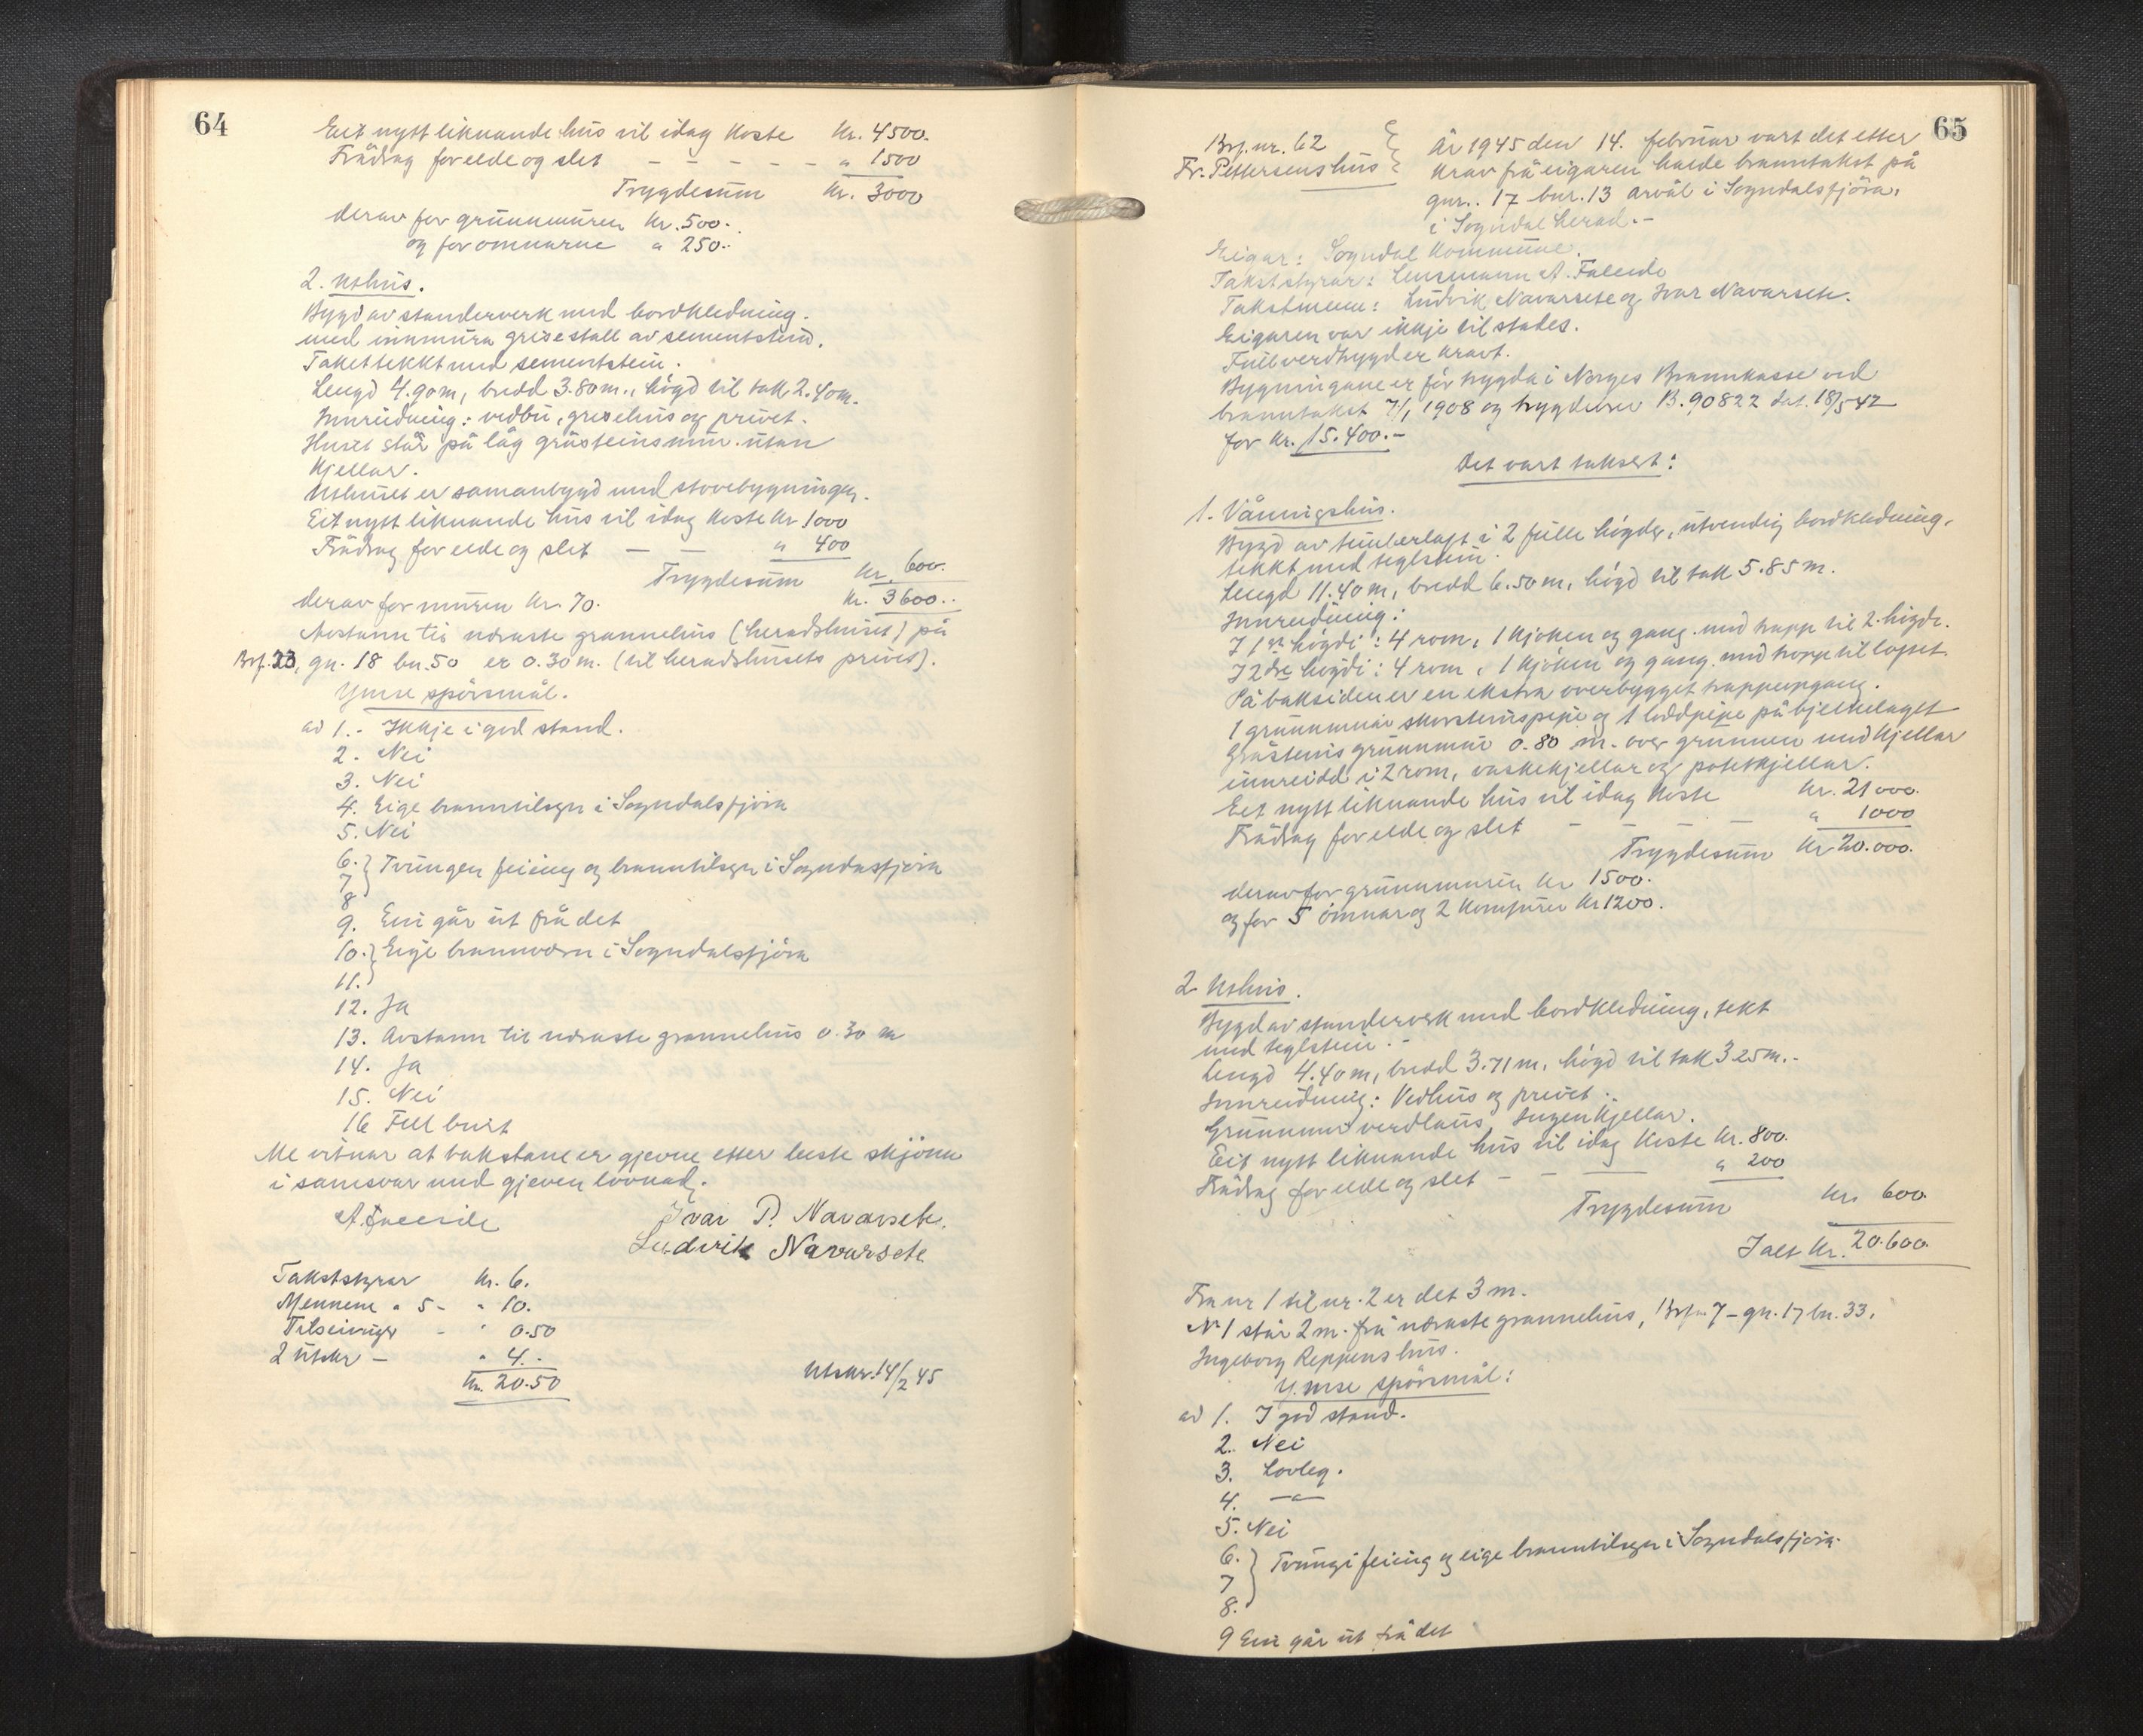 64
Eit nytt liknande hus vil idag koste Kr. 4500.
Frådrag for elde og slit - - - - - " 1500
Trygdesum Kr. 3000
derav for grunnmuren Kr. 500.
og for omnarne " 250.
2. Uthus.
Bygd av standerverk med bordkledning.
med innmura grisestall av sementstein.
Taket tekkt med sementstein.
Lengd 4.90 m, bredd 3.80 m., högd til tak 2.40 m.
Innreidning: vedbu, grisehus og privet.
Huset står på låg gråsteinsmur utan
kjellar.
Uthuset er samanbygd med stovebygningen.
Eit nytt liknande hus vil idag koste Kr 1000
Frådrag for elde og slit — — " 400
Trygdesum Kr. 600.
derav for muren Kr. 70. Kr. 3600..
Avstann til næraste grannehus (heradshuset) på
Brf. 23, gn. 18 bn. 50 er 0.30 m. (til heradshusets privet).
Ymse spörsmål.
ad 1. - Ikkje i god stand.
2. Nei
3. Nei
4. Eige branntilsyn i Sogndalsfjöra
5. Nei
6.
7 } Tvungen feiing og branntilsyn i Sogndalsfjöra
8
9. Ein går ut frå det
10. } Eige brannvern i Sogndalsfjöra
11.
12. Ja
13. Avstann til næraste grannehus 0.30 m
14. Ja
15. Nei
16 Fell burt
Me vitnar at takstane er gjevne etter beste skjönn
i samsvar med gjeven lovnad.
A. Faleide Ivar P. Navarsete.
Ludvik Navarsete
Takststyrar Kr. 6.
Mennene " 5 - " 10.
Tilseiingar - " 0.50
2 Utskr - " 4. -
Kr. 20.50
Utskr. 14/2 45
65
Brf. nr. 62
Fr. Pettersens hus
År 1945 den 14. februar vart det etter
krav frå eigaren halde branntakst på
gnr. 17 bnr. 13 Årvål i Sogndalsfjöra,
i Sogndal herad. -
Eigar: Sogndal Kommune.
Takststyrar: Lensmann A. Faleide
Takstmenn: Ludvik Navarsete og Ivar Navarsete.
Eigaren var ikkje til stades.
Fullverdtrygd er kravt.
Bygningane er för trygda i Norges Brannkasse ved
branntakst 7/1 1908 og trygdebrev B. 90822 dat. 18/5 42
for Kr. 15.400.-
Det vart taksert:
1. Våningshus.
Bygd av timberlaft i 2 fulle högder, utvendig bordkledning,
tekkt med teglstein.
Lengd 11.40 m, bredd 6.50 m, högd til tak 5.85 m.
Innreidning:
I 1ste högdi: 4 rom, 1 kjöken og gang med trapp til 2. högde.
I 2dre högdi: 4 rom, 1 kjöken og gang med trapp til loftet
På baksiden er en ekstra overbygget trappeopgang.
1 grunnmura skorsteinspipe og 1 loddpipe på bjelkelaget
Gråsteins grunnmur 0.80 m. over grunnen med kjellar
innreidd i 2 rom, vaskekjellar og potetkjellar.
Eit nytt liknande hus vil idag koste Kr. 21000.
Frådrag for elde og slit - - - - " 1000
Trygdesum Kr 20.000.
derav for grunnmuren Kr 1500.
og for 5 omnar og 2 komfurer Kr 1200.
2 Uthus.
Bygd av standerverk med bordkledning, tekt
med teglstein. -
Lengd 4.40 m, bredd 3.71 m, högd til tak 3.25 m. -
Innreidning: Vedhus og privet.
Grunnmur verdlaus. Ingen kjellar.
Eit nytt liknande hus vil idag koste Kr. 800.
Frådrag for elde og slit - - — " 200
Trygdesum Kr. 600.
Ialt Kr. 20.600.
Fra nr 1 til nr. 2 er det 3 m.
Nr 1 står 2 m. frå næraste grannehus, Brf nr. 7 - gn. 17 bn. 33.
Ingeborg Reppens hus.
Ymse spörsmål:
ad 1. I god stand.
2. Nei
3. Lovleg.
4. —"—
5. Nei
6.
7 } Tvungi feiing og eige branntilsyn i Sogndalsfjöra.
8.
9 Ein går ut frå det